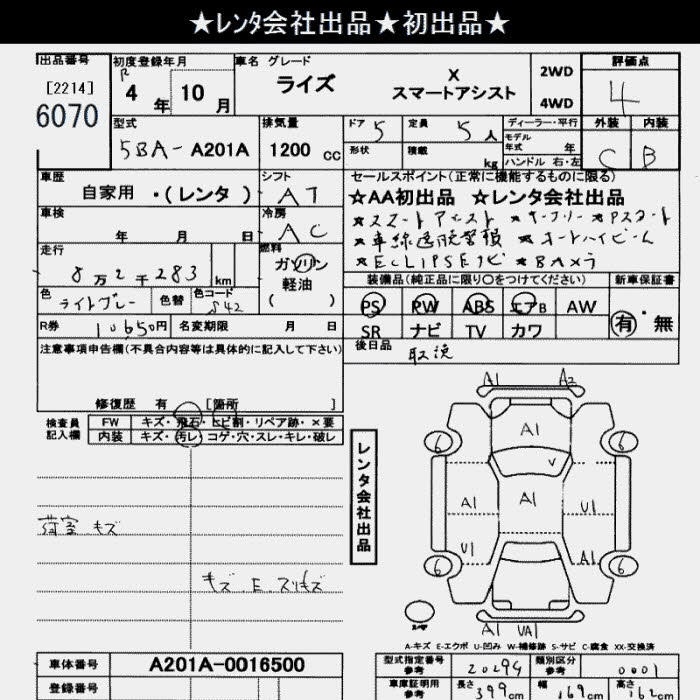 ★レンタ会社出品★初出品★
出品番号 初度登録年月 車名 グレード 評価点
[2214] 6070 R 4年 10月 ライズ X スマートアシスト 2WD 4WD 4
型式 排気量 ドア 5 定員 5人 ディーラー・平行 外装 内装
5BA-A201A 1200cc 形状 積載 kg モデル年式 年 ハンドル 右・左 C B
車歴 シフト セールスポイント(正常に機能するものに限る)
自家用・(レンタ) AT ★AA初出品 ★レンタ会社出品
車検 冷房 ★スマートアシスト ★キーフリー ★Pスタート
年 月 日 AC ★車線逸脱警報 ★オートハイビーム
走行 燃料 ★ECLIPSEナビ ★BAメラ
8万2千283 km ガソリン 軽油 ( )
装備品(純正品に限り○をつけてください) 新車保証書
色 ライトブレー 色替 色コード S42 PS PW ABS エアB AW 有・無
R券 10650円 名変期限 月 日 SR ナビ TV カワ
注意事項申告欄(不具合内容等は具体的に記入して下さい) 後日品 取説
修復歴 有 [箇所 ]
検査員記入欄 FW キズ・飛石・ヒビ割・リペア跡・×要
内装 キズ・汚レ・コゲ・穴・スレ・キレ・破レ
レンタ会社出品
A1 A2
A1
6 6
A1 A1 U1
U1 A1
6 6
荷室 キズ
キズ.E.スリキズ
A1 VA1
A-キズ E-エクボ U-凹み W-補修跡 S-サビ C-腐食 XX-交換済
車体番号 A201A-0016500 型式指定番号 参考 20294 類別区分 参考 0001
登録番号 車庫証明用 参考 長さ 399cm 幅 169cm 高さ 162cm